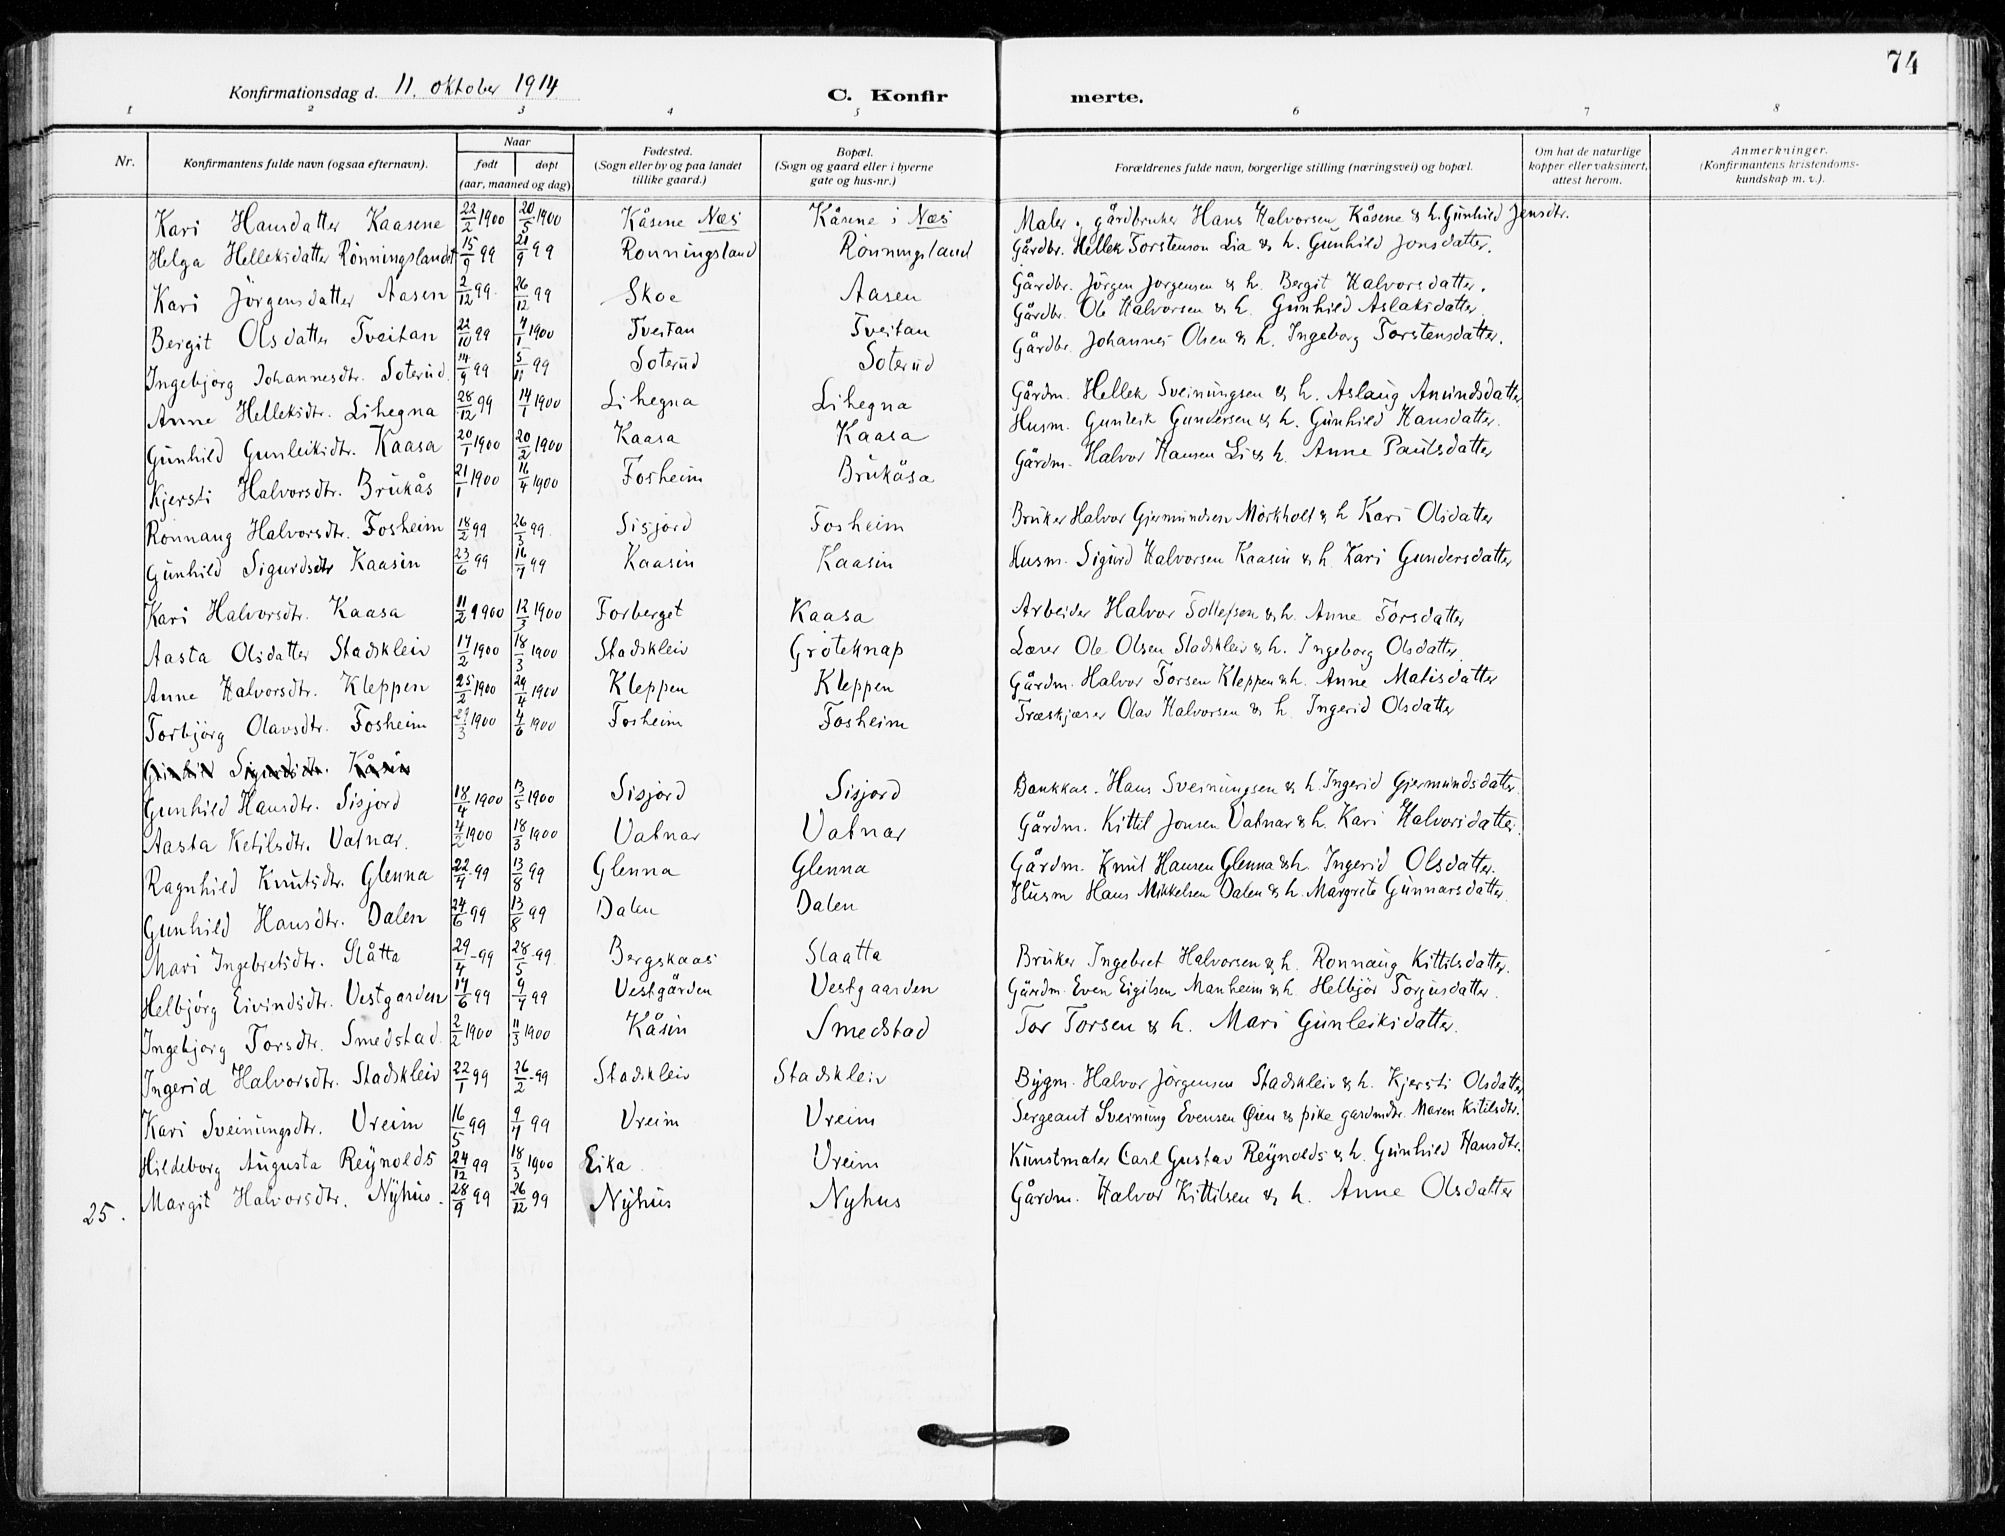 74
Konfirmationsdag d. 11. oktober 1914
C. Konfirmerte.
1 2 3 4 5 6 7 8
Nr. Konfirmantens fulde navn (ogsaa efternavn). Naar født døpt (aar, maaned og dag) Fødested. (Sogn eller by og paa landet tillike gaard.) Bopæl. (Sogn og gaard eller i byerne gate og hus-nr.) Forældrenes fulde navn, borgerlige stilling (næringsvei) og bopæl. Om hat de naturlige kopper eller vaksinert, attest herom. Anmerkninger. (Konfirmantens kristendomskundskap m. v.).
Kari Hansdatter Kaasene 22/2 1900 20/5 1900 Kåsene Næs Kåsene i Næs Maler, gårdbruker Hans Halvorsen Kåsene & h. Gunhild Jensdtr.
Helga Helleksdatter Rönningsland 15/9 99 21/9 99 Ronningsland Rönningsland Gårdbr. Hellek Torstenson Lia & h. Gunhild Jonsdatter.
Kari Jörgensdatter Aasen 2/12 99 26/12 99 Skoe Aasen Gårdbr. Jörgen Jorgensen & h. Bergit Halvorsdatter.
Bergit Olsdatter Tveitan 22/10 99 4/1 1900 Tveitan Tveitan Gårdbr. Ole Halvorsen & h. Gunhild Aslaksdatter.
Ingebjörg Johannesdtr. Soterud 14/9 99 5/11 99 Soterud Soterud Gårdbr. Johannes Olsen & h. Ingeborg Torstensdatter.
Anne Helleksdtr. Lihegna 28/12 99 14/1 1900 Lihegna Lihegna Gårdm. Hellek Sveinungsen & h. Aslaug Anundsdatter
Gunhild Gunleiksdtr. Kaasa 20/1 1900 20/2 1900 Kaasa Kaasa Husm. Gunleik Gundersen & h. Gunhild Hansdatter.
Kjersti Halvorsdtr. Brukås 21/1 1900 16/4 1900 Fosheim Brukåsa Gårdm. Halvor Hansen Li & h. Anne Paulsdatter
Rönnaug Halvorsdtr. Fosheim 18/2 99 26/3 99. Sisjord Fosheim Bruker Halvor Gjermundsen Mörkholt & h Kari Olsdatter
Gunhild Sigurdsdtr Kaasin 23/6 99 16/7 99 Kaasin Kaasin Husm. Sigurd Halvorsen Kaasin & h. Kari Gundersdatter
Kari Halvorsdtr. Kaasa 11/2 1900 12/3 1900 Forberget Kaasa Arbeider Halvor Tollefsen & h. Anne Torsdatter
Aasta Olsdatter Stadskleiv 17/2 1900 18/3 1900 Stadskleiv Gröteknap Lærer Ole Olsen Stadskleiv & h. Ingeborg Olsdatter
Anne Halvorsdtr. Kleppen 25/2 1900 29/4 1900 Kleppen Kleppen Gårdm. Halvor Torsen Kleppen & h. Anne Matisdatter
Torbjörg Olavsdtr. Fosheim 29/3 1900 4/6 1900 Fosheim Fosheim Træskjærer Olav Halvorsen & h. Ingerid Olsdatter
Gunhild Sigurdsdtr. Kåsin
Gunhild Hansdtr. Sisjord 18/4 1900 13/5 1900 Sisjord Sisjord Bankkas. Hans Sveinungsen & h. Ingerid Gjermundsdatter.
Aasta Ketilsdtr. Vatnar. 4/2 1900 18/3 1900 Vatnar Vatnar Gårdm. Kittil Jonsen Vatnar & h. Kari Halvorsdatter.
Ragnhild Knutsdtr. Glenna 22/4 99 13/8 99 Glenna Glenna Gårdm. Knut Hansen Glenna & h. Ingerid Olsdatter.
Gunhild Hansdtr. Dalen 24/6 99 13/8 99 Dalen Dalen Husm Hans Mikkelsen Dalen & h. Margrete Gunnarsdatter.
Mari Ingebretsdtr. Slåtta 29/4 -99 28/5 -99 Bergskaas Slaatta Bruker Ingebret Halvorsen & h. Ronnaug Kittilsdatter.
Helbjörg Eivindsdtr. Vestgarden 17/6 99 9/7 99 Vestgården Vestgaarden Gårdm. Even Eigilsen Manheim & h. Helbjör Torjusdatter.
Ingebjorg Torsdtr. Smedstad 2/2 1900 11/3 1900 Kåsin Smedstad Tor Torsen & h. Mari Gunleiksdatter.
Ingerid Halvorsdtr. Stadskleiv 22/1 99 26/2 -99 Stadskleiv Stadskleiv Bygm. Halvor Jörgensen Stadskleiv & h. Kjersti Olsdatter
Kari Sveinungsdtr. Vreim 16/5 99 9/7 99 Vreim Vreim Sergeant Sveinung Evensen Øien & pike gardmdtr. Maren Kitilsdtr.
Hildeborg Augusta Reynolds 24/12 99 18/3 1900 Eika. Vreim Kunstmaler Carl Gustav Reynolds & h. Gunhild Hansdtr.
25. Margit Halvorsdtr. Nyhus. 28/9 99 26/12 99 Nyhus Nyhus Gårdm. Halvor Kittilsen & h. Anne Olsdatter